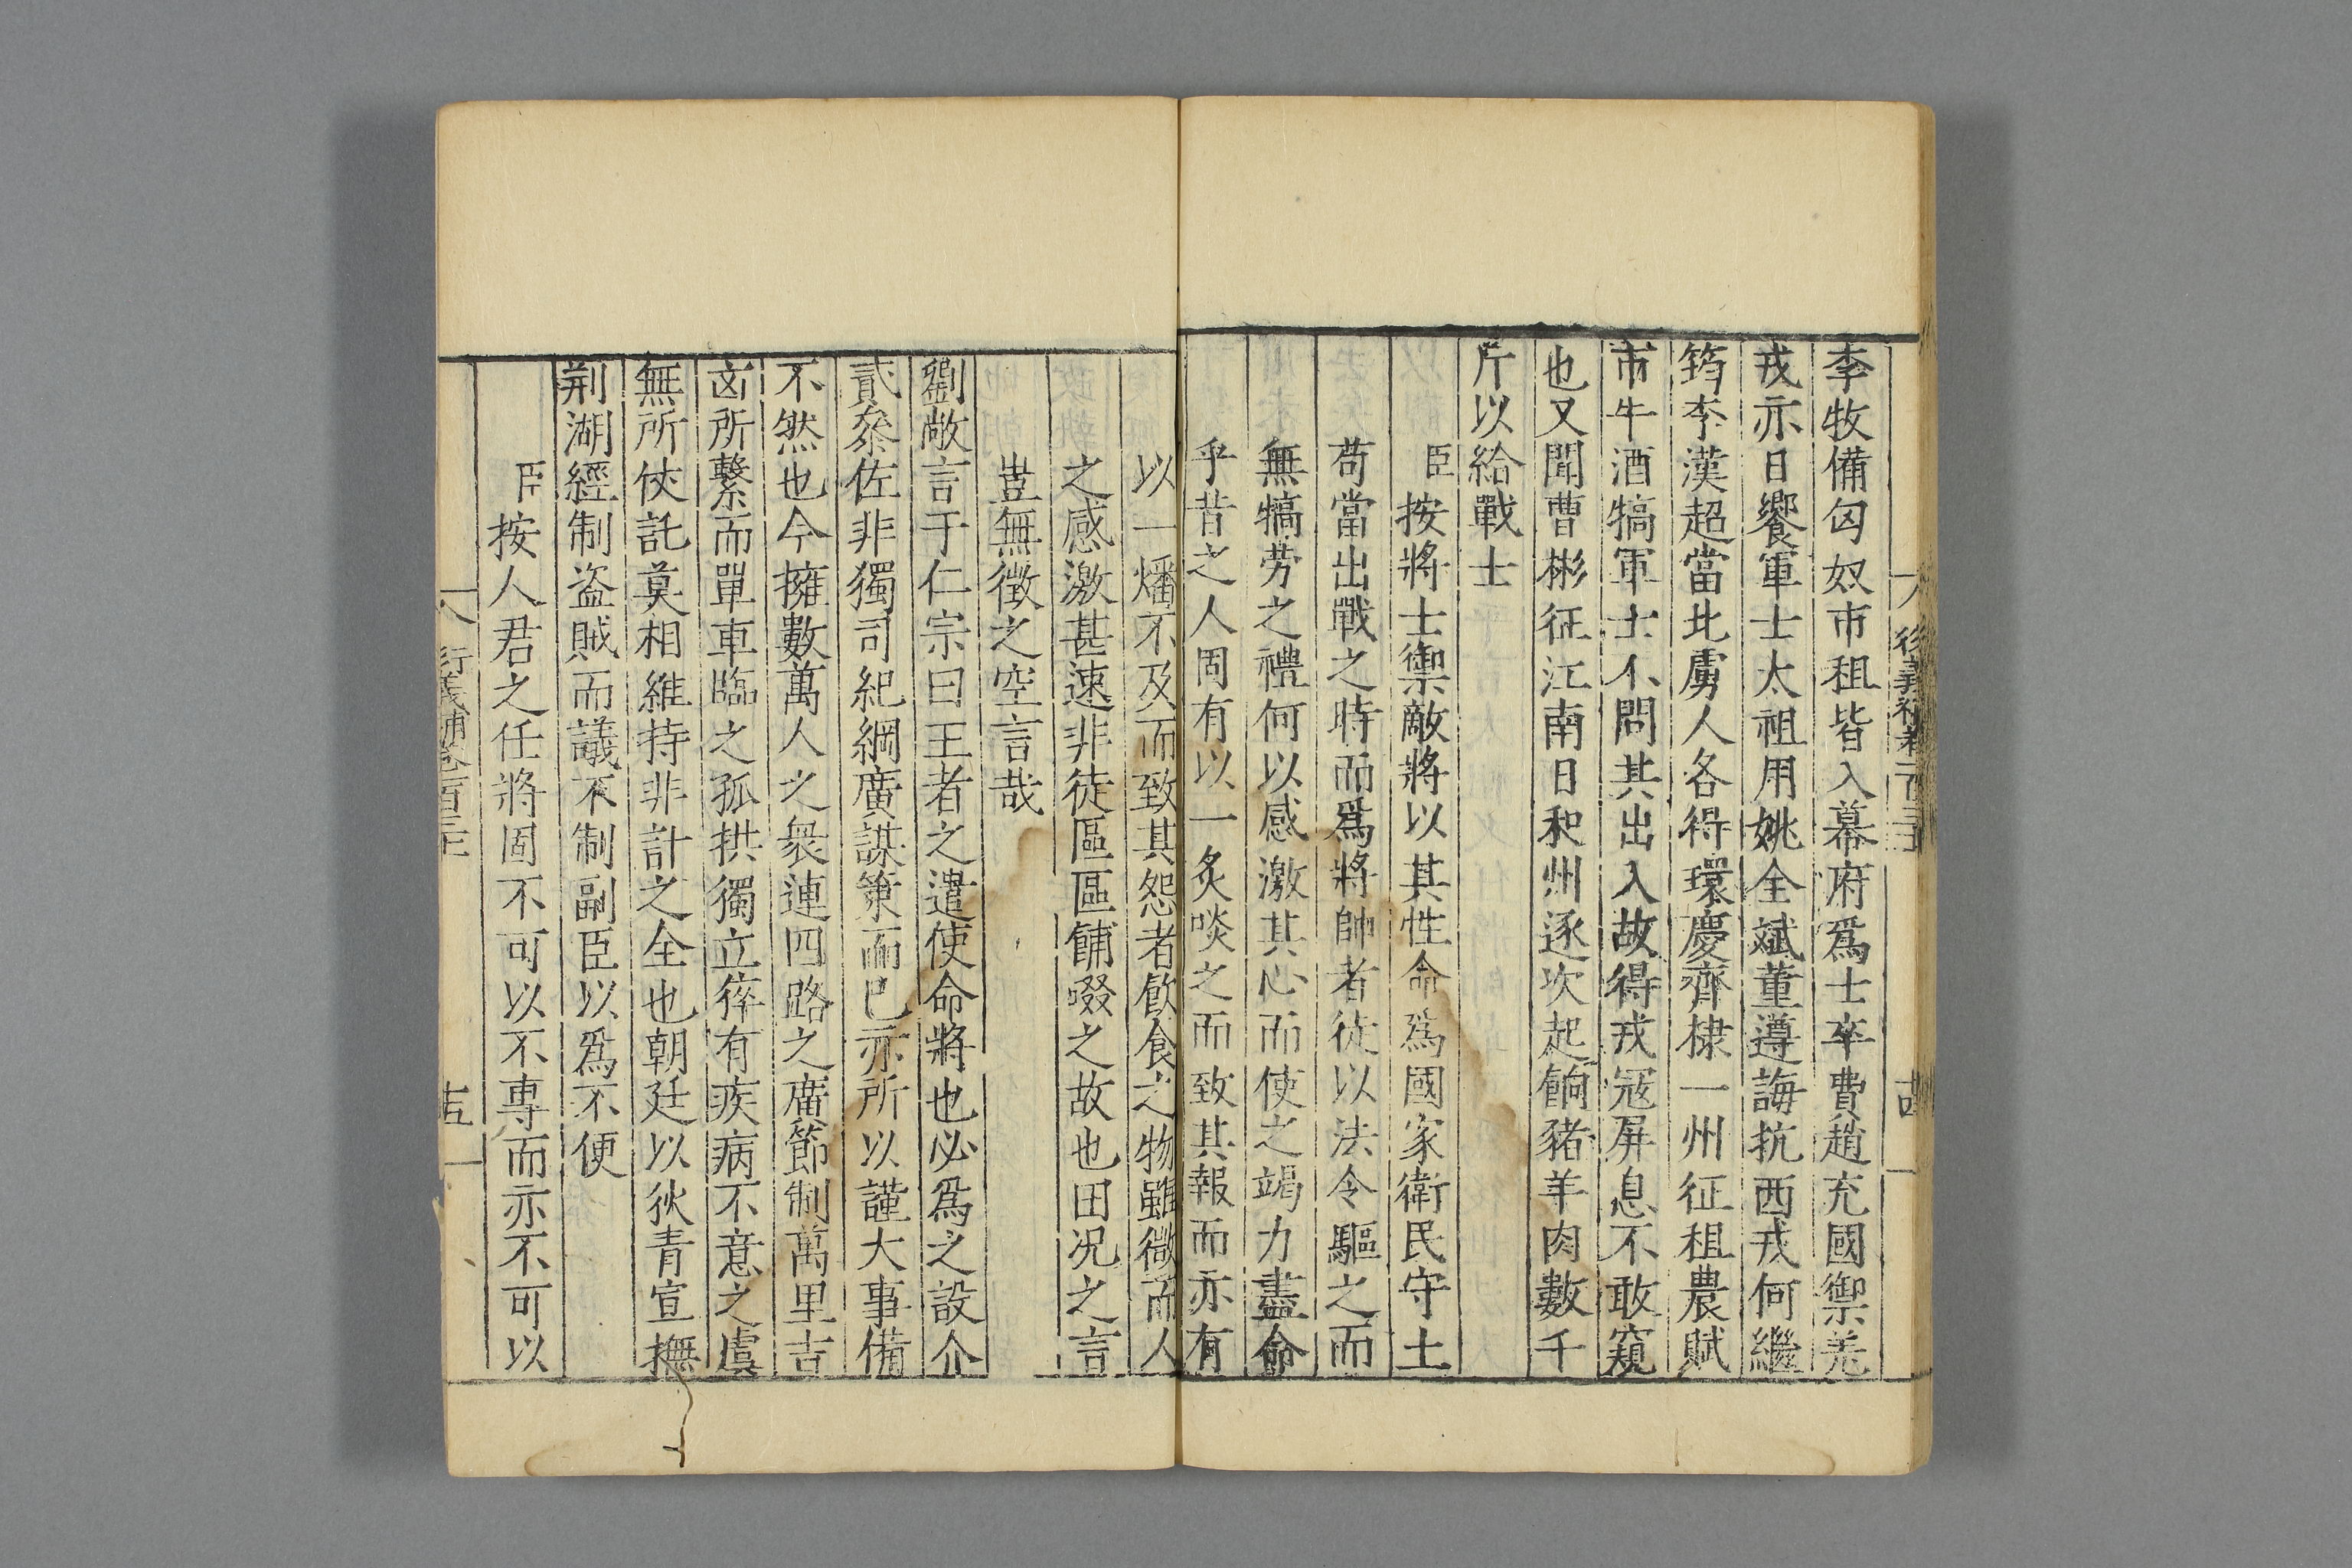 李牧備匈奴市租皆入幕府爲士卒費趙充國禦羌
戎亦日饗軍士太祖用姚全斌董遵誨抗西戎何繼
筠李漢超當北虜人各得環慶齊棣一州征租農賦
市牛酒犒軍士不問其出入故得戎冦屏息不敢窺
也又聞曹彬征江南日和州逐次起餉豬羊肉數千
斤以給戰士
臣按將士禦敵將以其性命爲國家衛民守土
苟當出戰之時而爲將帥者徒以法令驅之而
無犒勞之禮何以感激其心而使之竭力盡命
乎昔之人固有以一炙啖之而致其報而亦有
以一燔不及而致其怨者飮食之物雖微而人
之感激甚速非徒區區餔啜之故也田况之言
豈無徵之空言哉
劉敞言于仁宗曰王者之遣使命將也必爲之設介
貳叅佐非獨司紀綱廣謀策而已亦所以謹大事備
不然也今擁數萬人之衆連四路之廣節制萬里吉
凶所繫而單車臨之孤拱獨立猝有疾病不意之虞
無所俠託莫相維持非計之全也朝廷以狄青宣撫
荆湖經制盜賊而議不制副臣以爲不便
臣按人君之任將固不可以不專而亦不可以